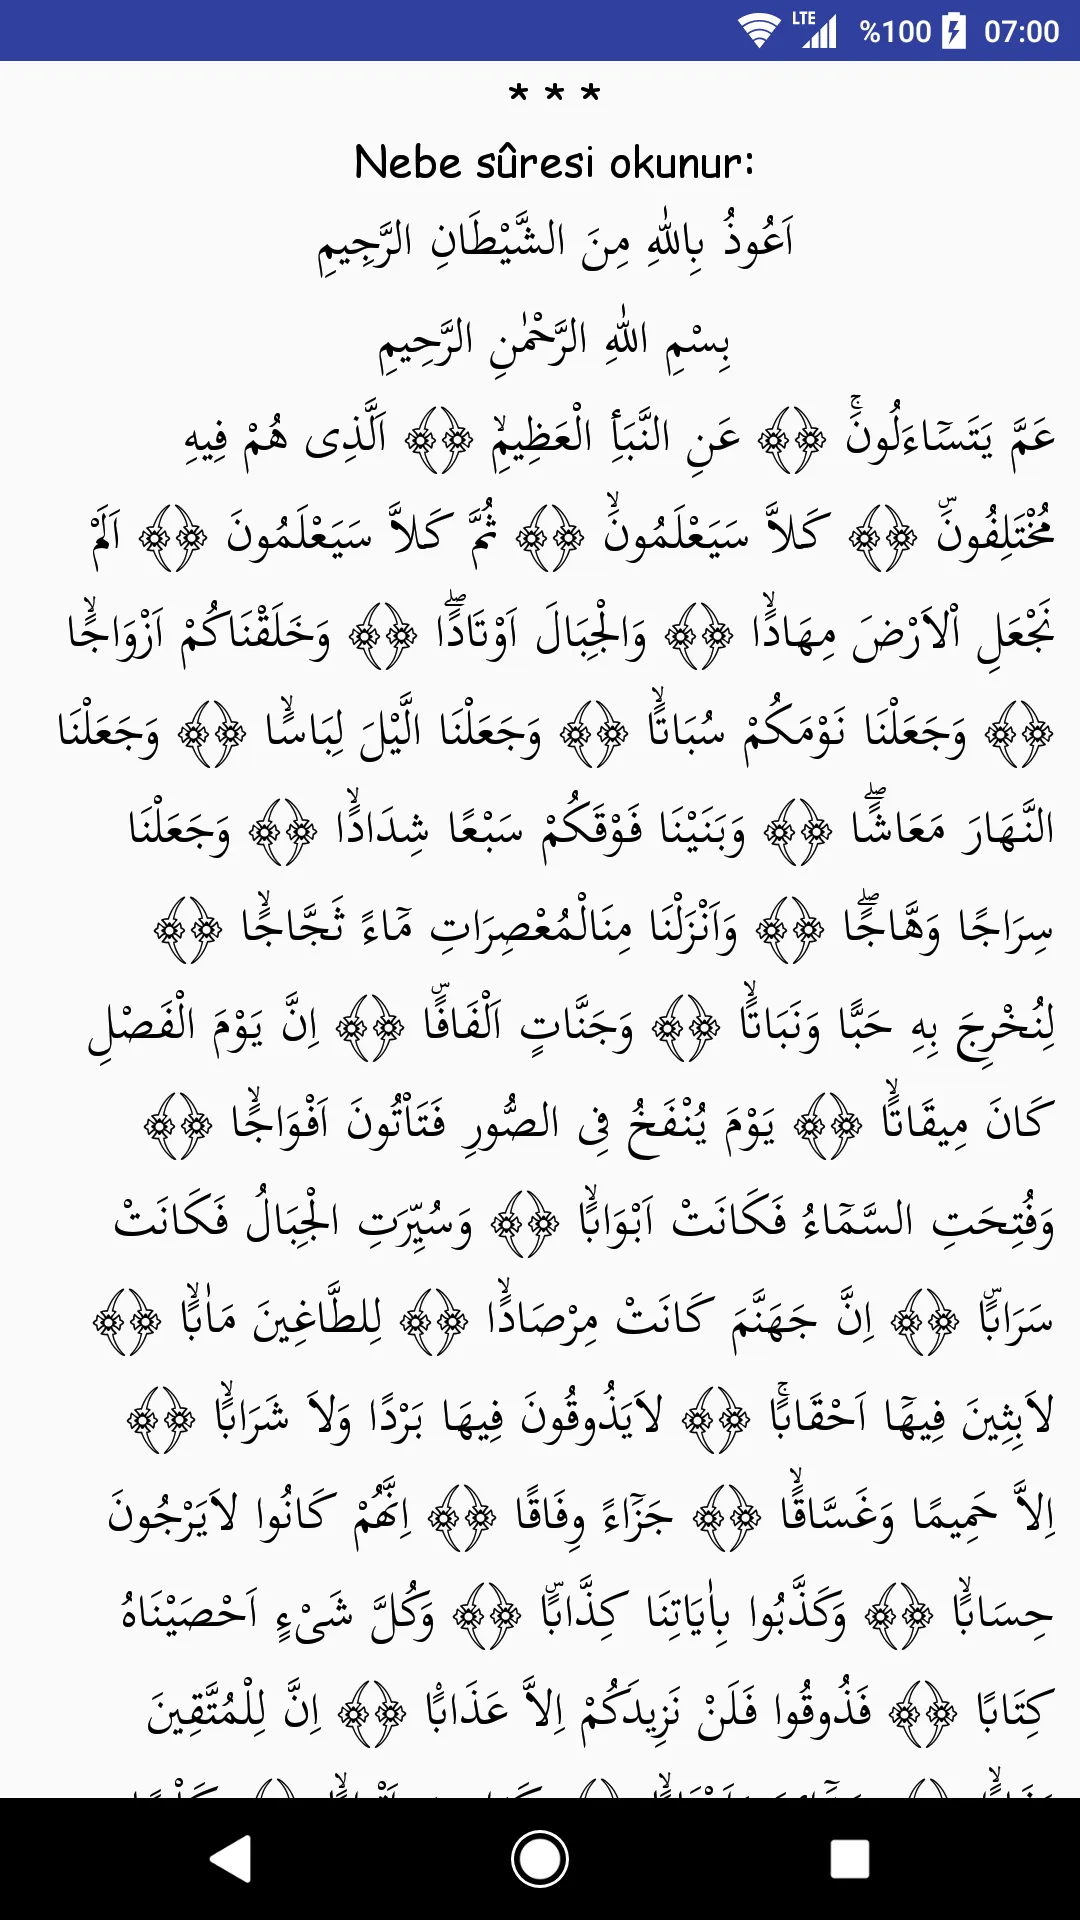 LTE %100 07:00
* * *
Nebe sûresi okunur:
اَعُوذُ بِاللّٰهِ مِنَ الشَّيْطَانِ الرَّجِيمِ
بِسْمِ اللّٰهِ الرَّحْمٰنِ الرَّحِيمِ
عَمَّ يَتَسَٓاءَلُونَۚ ﴿﴾ عَنِ النَّبَأِ الْعَظِيمِۙ ﴿﴾ اَلَّذِى هُمْ فِيهِ
مُخْتَلِفُونَۜ ﴿﴾ كَلاَّ سَيَعْلَمُونَۙ ﴿﴾ ثُمَّ كَلاَّ سَيَعْلَمُونَ ﴿﴾ اَلَمْ
نَجْعَلِ اْلاَرْضَ مِهَادًاۙ ﴿﴾ وَالْجِبَالَ اَوْتَادًاۖ ﴿﴾ وَخَلَقْنَاكُمْ اَزْوَاجًاۙ
﴿﴾ وَجَعَلْنَا نَوْمَكُمْ سُبَاتًاۙ ﴿﴾ وَجَعَلْنَا الَّيْلَ لِبَاسًاۙ ﴿﴾ وَجَعَلْنَا
النَّهَارَ مَعَاشًاۖ ﴿﴾ وَبَنَيْنَا فَوْقَكُمْ سَبْعًا شِدَادًاۙ ﴿﴾ وَجَعَلْنَا
سِرَاجًا وَهَّاجًاۖ ﴿﴾ وَاَنْزَلْنَا مِنَالْمُعْصِرَاتِ مَٓاءً ثَجَّاجًاۙ ﴿﴾
لِنُخْرِجَ بِهِ حَبًّا وَنَبَاتًاۙ ﴿﴾ وَجَنَّاتٍ اَلْفَافًاۜ ﴿﴾ اِنَّ يَوْمَ الْفَصْلِ
كَانَ مِيقَاتًاۙ ﴿﴾ يَوْمَ يُنْفَخُ فِى الصُّورِ فَتَاْتُونَ اَفْوَاجًاۙ ﴿﴾
وَفُتِحَتِ السَّمَٓاءُ فَكَانَتْ اَبْوَابًاۙ ﴿﴾ وَسُيِّرَتِ الْجِبَالُ فَكَانَتْ
سَرَابًاۜ ﴿﴾ اِنَّ جَهَنَّمَ كَانَتْ مِرْصَادًاۙ ﴿﴾ لِلطَّاغِينَ مَاٰبًاۙ ﴿﴾
لاَبِثِينَ فِيهَٓا اَحْقَابًاۚ ﴿﴾ لاَيَذُوقُونَ فِيهَا بَرْدًا وَلاَ شَرَابًاۙ ﴿﴾
اِلاَّ حَمِيمًا وَغَسَّاقًاۙ ﴿﴾ جَزَٓاءً وِفَاقًا ﴿﴾ اِنَّهُمْ كَانُوا لاَيَرْجُونَ
حِسَابًاۙ ﴿﴾ وَكَذَّبُوا بِاٰيَاتِنَا كِذَّابًاۜ ﴿﴾ وَكُلَّ شَىْءٍ اَحْصَيْنَاهُ
كِتَابًا ﴿﴾ فَذُوقُوا فَلَنْ نَزِيدَكُمْ اِلاَّ عَذَابًا۟ ﴿﴾ اِنَّ لِلْمُتَّقِينَ